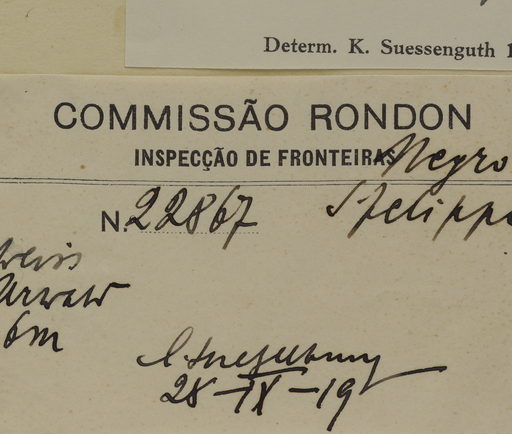 Determ. K. Suessenguth 1
COMMISSÃO RONDON
INSPECÇÃO DE FRONTEIRAS
Negro
N. 22867
S. Felippe
weiss
Urwald
6m
28-IX-19